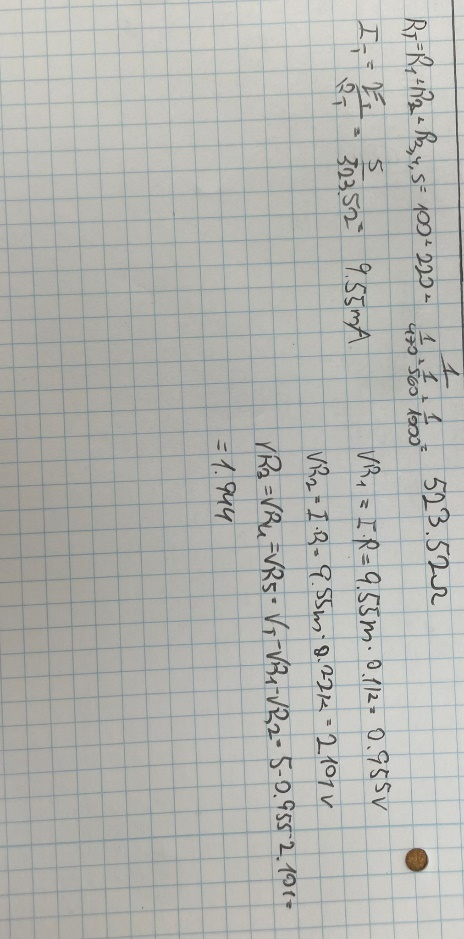 RT = R1 + R2 + R3,4,5 = 100 + 220 + 1 / (1/470 + 1/560 + 1/1000) = 523.52Ω
IT = VT / RT = 5 / 523.52 = 9.55mA
VR1 = I·R = 9.55m · 0.1k = 0.955V
VR2 = I·R = 9.55m · 0.22k = 2.101V
VR3 = VR4 = VR5 = VT - VR1 - VR2 = 5 - 0.955 - 2.101 =
= 1.944